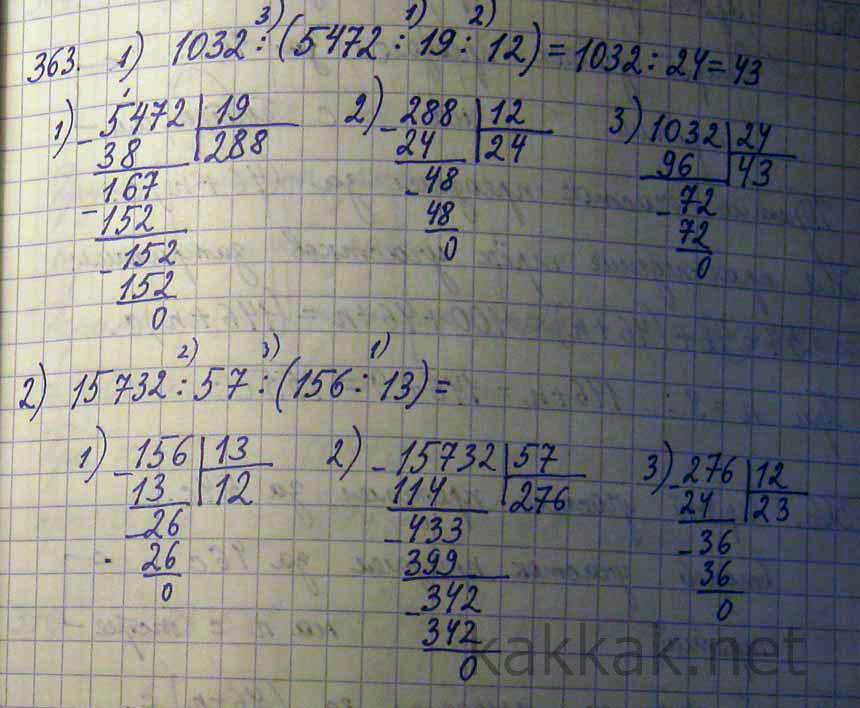 363. 1) 1032 : (5472 : 19 : 12) = 1032 : 24 = 43
3) 1) 2)
1) - 5472 | 19
38 | 288
167
- 152
- 152
152
0
2) - 288 | 12
24 | 24
- 48
48
0
3) 1032 | 24
96 | 43
- 72
72
0
2) 3) 1)
2) 15732 : 57 : (156 : 13) =
1) - 156 | 13
13 | 12
- 26
26
0
2) - 15732 | 57
114 | 276
- 433
399
- 342
342
0
3) - 276 | 12
24 | 23
- 36
36
0
kakkak.net